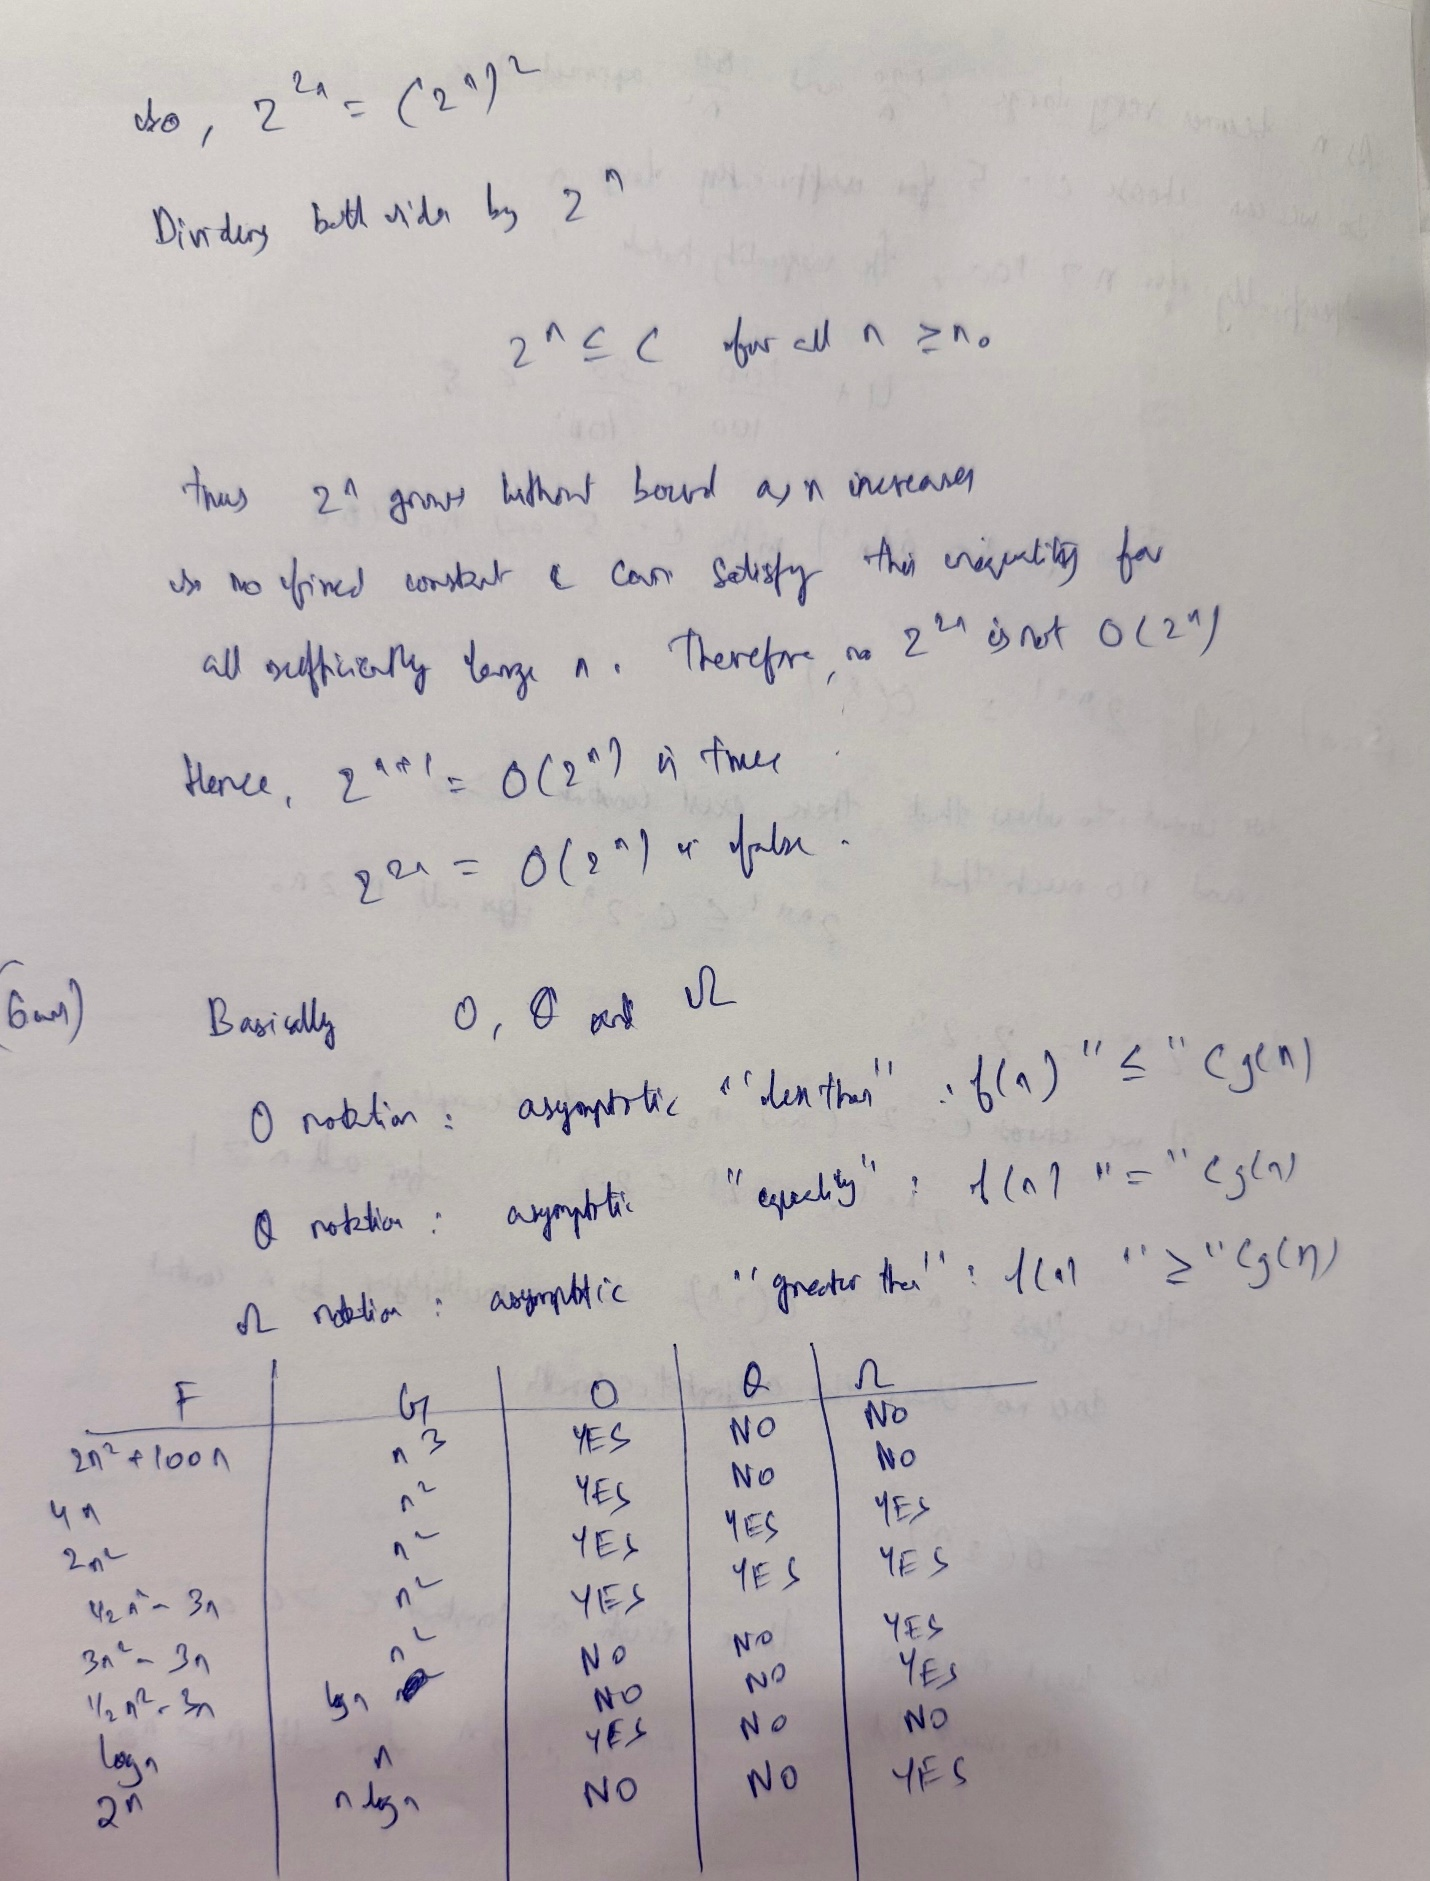 so, 2^2n = (2^n)^2
Dividing both sides by 2^n
2^n ≤ C for all n ≥ n0
thus 2^n grows without bound as n increases
so no fixed constant c can satisfy this inequality for
all sufficiently large n. Therefore, 2^2n is not O(2^n)
Hence, 2^n+1 = O(2^n) is true
2^2n = O(2^n) is false.
Basically O, Θ and Ω
O notation : asymptotic "less than" : f(n) "≤" Cg(n)
Θ notation : asymptotic "equality" : f(n) "=" Cg(n)
Ω notation : asymptotic "greater than" : f(n) "≥" Cg(n)
F G O Θ Ω
2n^2 + 100n n^3 YES NO NO
4n n^2 YES NO NO
2n^2 n^2 YES YES YES
1/2 n^2 - 3n n^2 YES YES YES
3n^2 - 3n n^2 NO NO YES
1/2 n^2 - 3n log n NO NO YES
log n n YES NO NO
2^n n log n NO NO YES